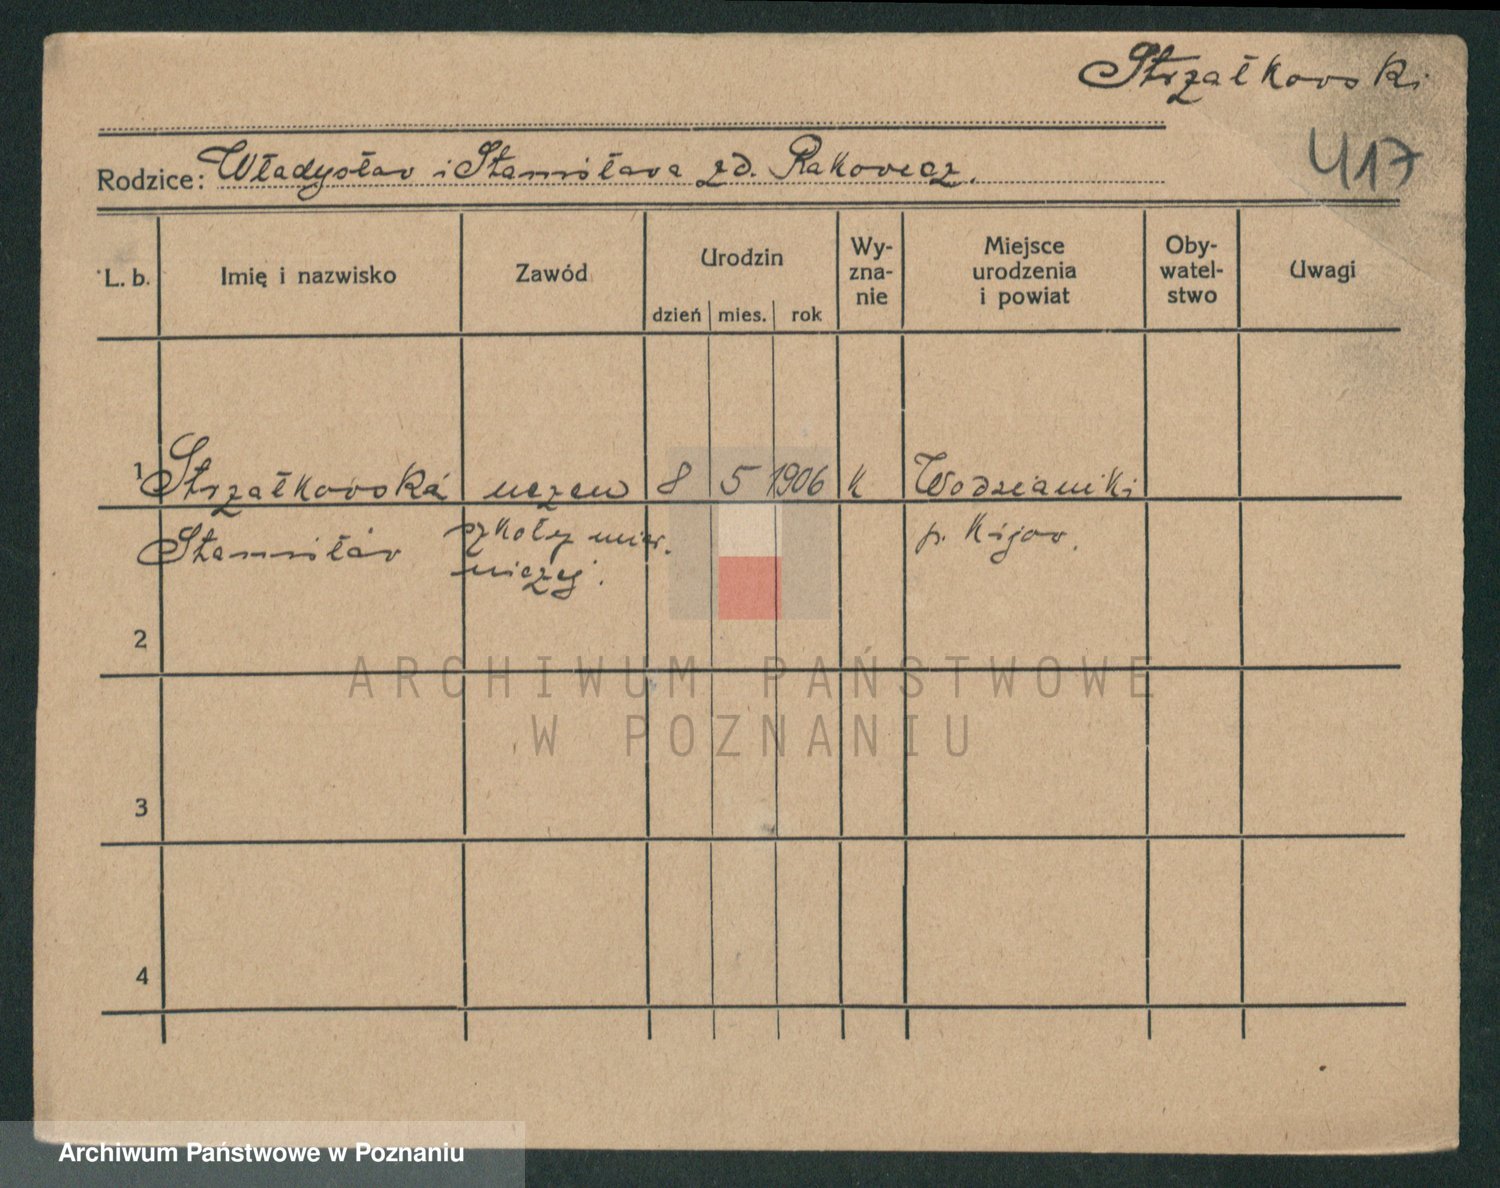 Strzałkowski
417
Rodzice: Władysław i Stanisława zd. Rakowicz.
L. b. Imię i nazwisko Zawód Urodzin dzień mies. rok Wy-zna-nie Miejsce urodzenia i powiat Oby-watel-stwo Uwagi
1 Strzałkowski uczeń 8 5 1906 k Wodzianiki
Stanisław szkoły mier. p. Kijow.
niczej.
2
ARCHIWUM PAŃSTWOWE
W POZNANIU
3
4
Archiwum Państwowe w Poznaniu